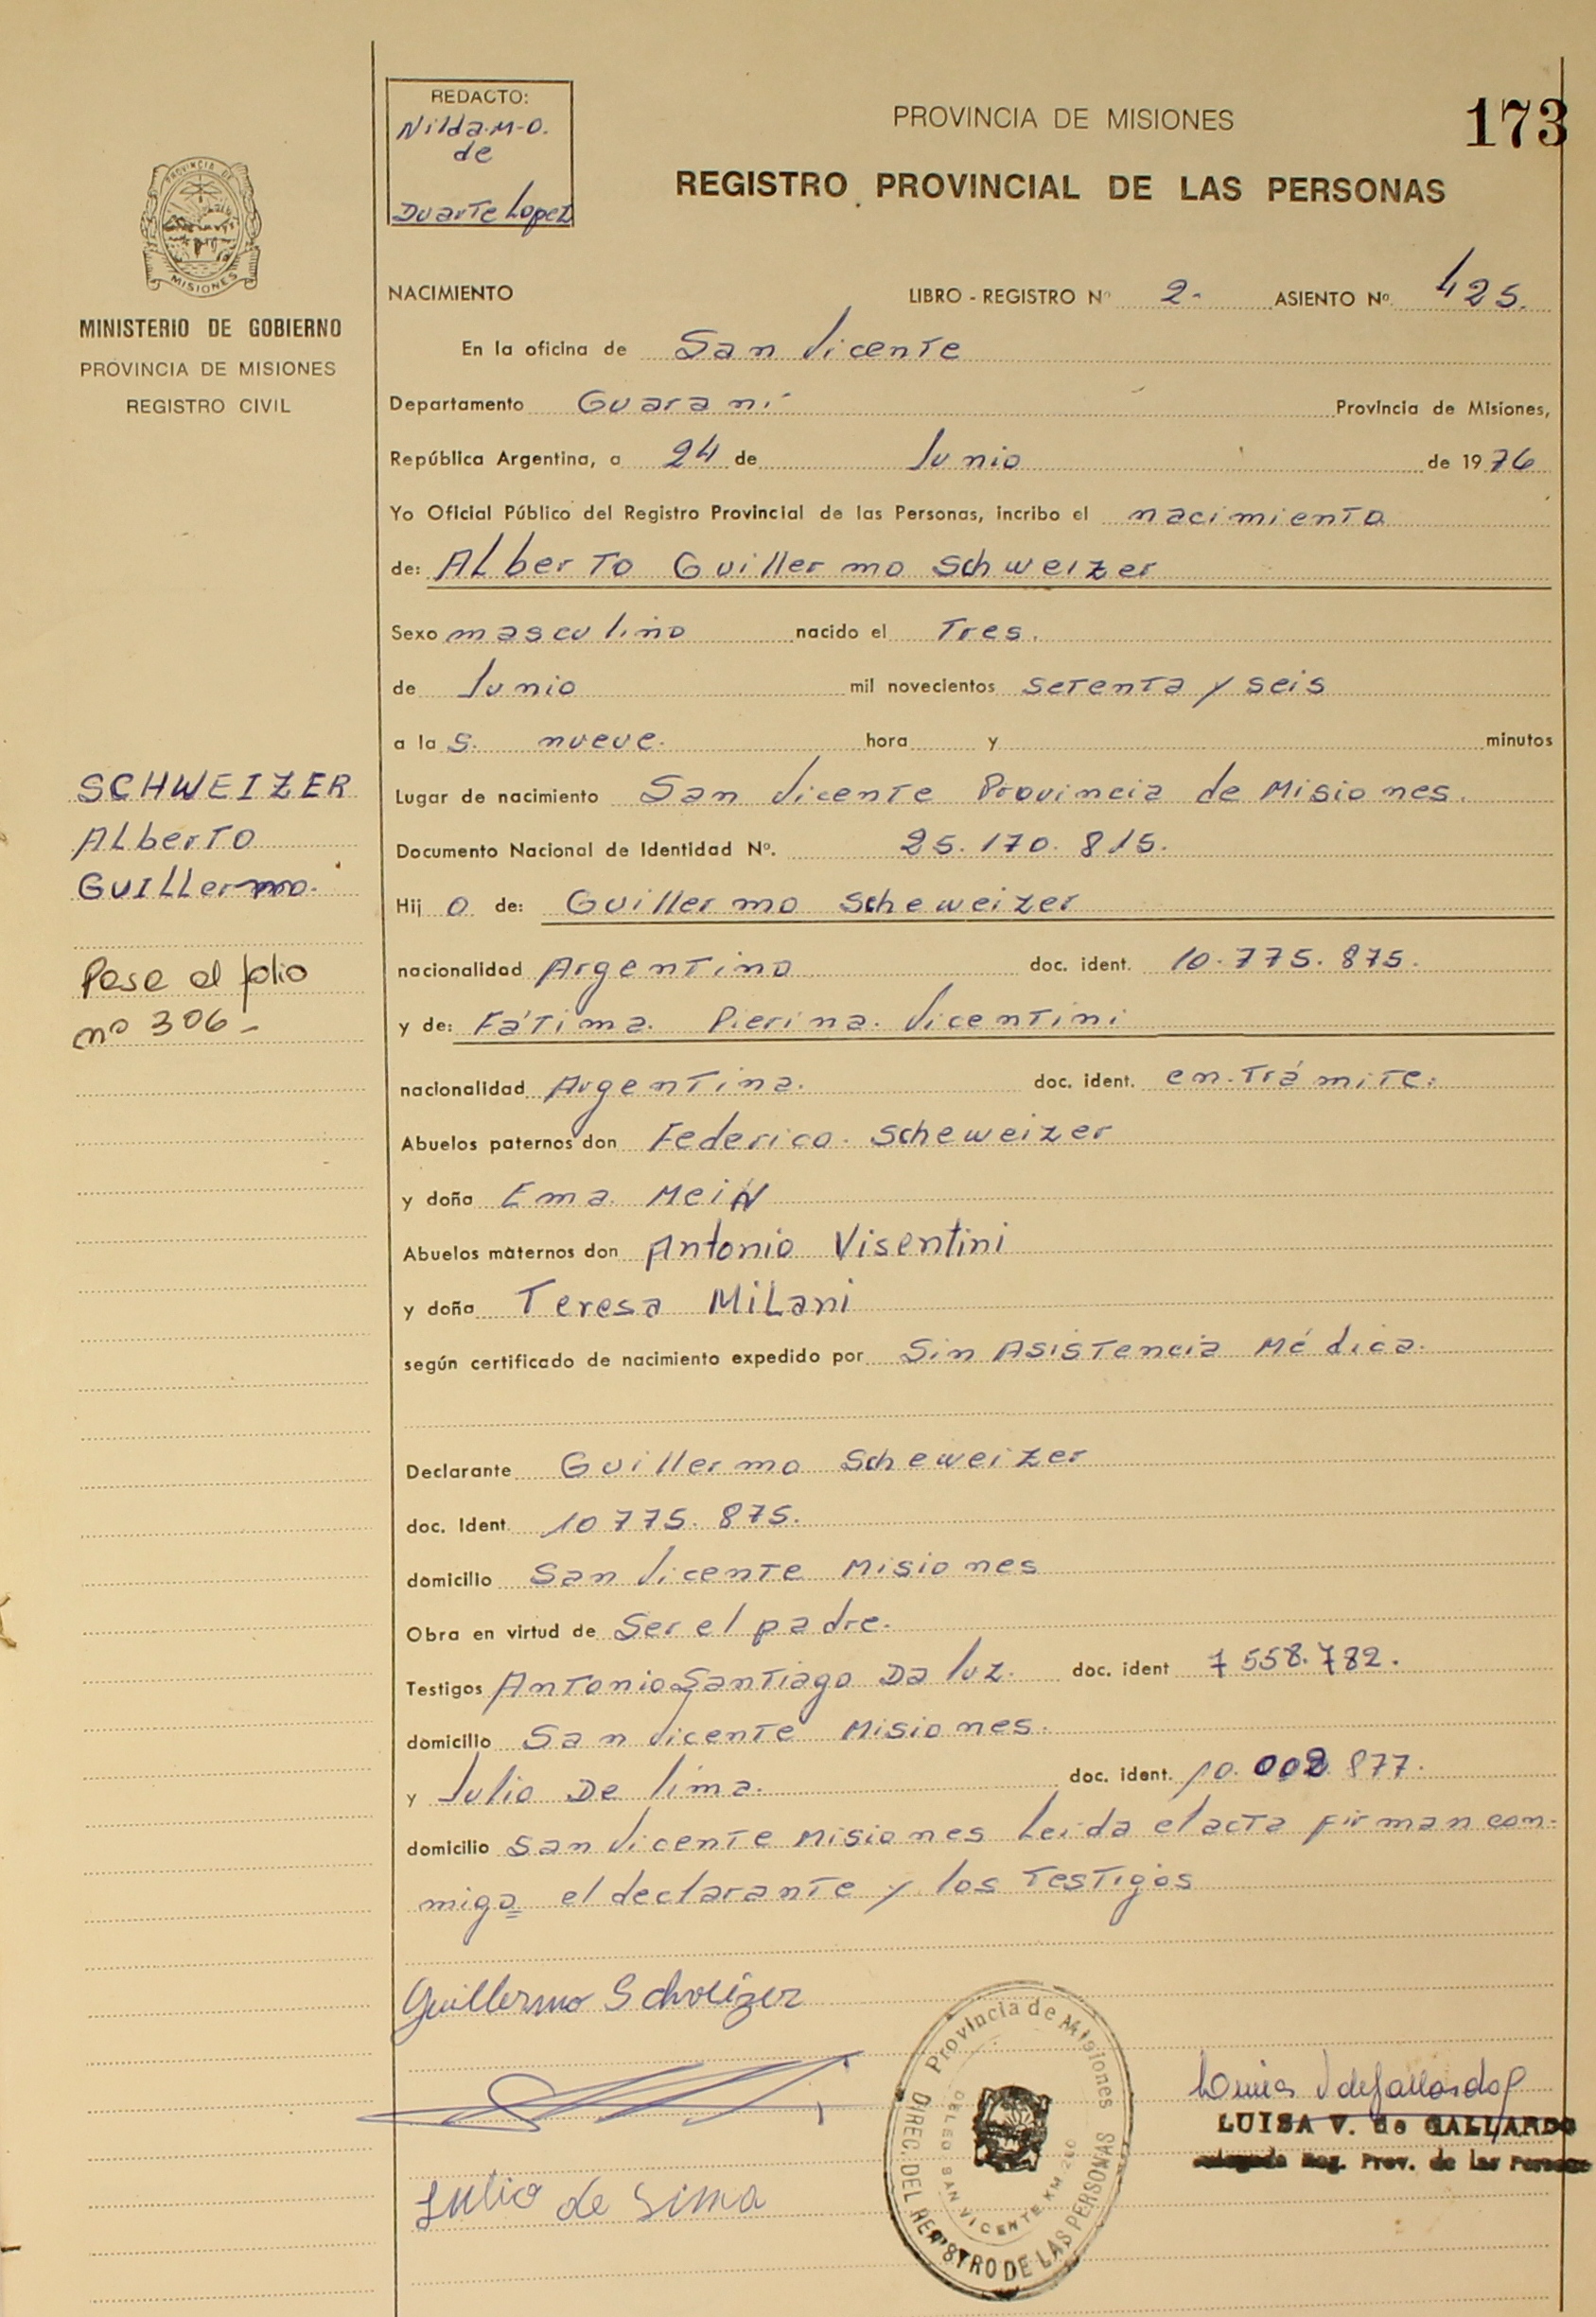 REDACTO:
Nilda.M-O.
de
Duarte Lopez
PROVINCIA DE MISIONES
173
REGISTRO PROVINCIAL DE LAS PERSONAS
PROVINCIA DE
MISIONES
MINISTERIO DE GOBIERNO
PROVINCIA DE MISIONES
REGISTRO CIVIL
NACIMIENTO LIBRO - REGISTRO Nº 2- ASIENTO Nº. 425.
En la oficina de San Vicente
Departamento Guaraní Provincia de Misiones,
República Argentina, a 24 de Junio de 1976
Yo Oficial Público del Registro Provincial de las Personas, incribo el nacimiento
de: Alberto Guillermo Schweizer
Sexo masculino nacido el Tres.
de Junio mil novecientos setenta y seis
a la s. nueve. hora y minutos
Lugar de nacimiento San Vicente Provincia de Misiones.
Documento Nacional de Identidad Nº. 25.170.815.
Hij o de: Guillermo Scheweizer
nacionalidad Argentino doc. ident. 10.775.875.
y de: Fátima. Pierina. Vicentini
nacionalidad Argentina. doc. ident. en-trámite.
Abuelos paternos don Federico. Scheweizer
y doña Ema. Mein
Abuelos maternos don Antonio Visentini
y doña Teresa Milani
según certificado de nacimiento expedido por Sin Asistencia Médica.
Declarante Guillermo Scheweizer
doc. Ident. 10 775.875.
domicilio San Vicente Misiones
Obra en virtud de Ser el padre.
Testigos Antonio Santiago Da luz. doc. ident 7 558.782.
domicilio San Vicente Misiones.
y Julio De lima. doc. ident. 10.002.877.
domicilio San Vicente Misiones Leida el acta firman con-
migo el declarante y los Testigos
SCHWEIZER
Alberto
Guillermo.
Pase al folio
nº 306-
Guillermo Schveizer
Julio de Lima
Provincia de Misiones
DIREC. DEL REGISTRO DE LAS PERSONAS
DELEG SAN VICENTE KM
Luisa V de Gallardo
LUISA V. de GALLARDO
Reg. Prov. de las Personas